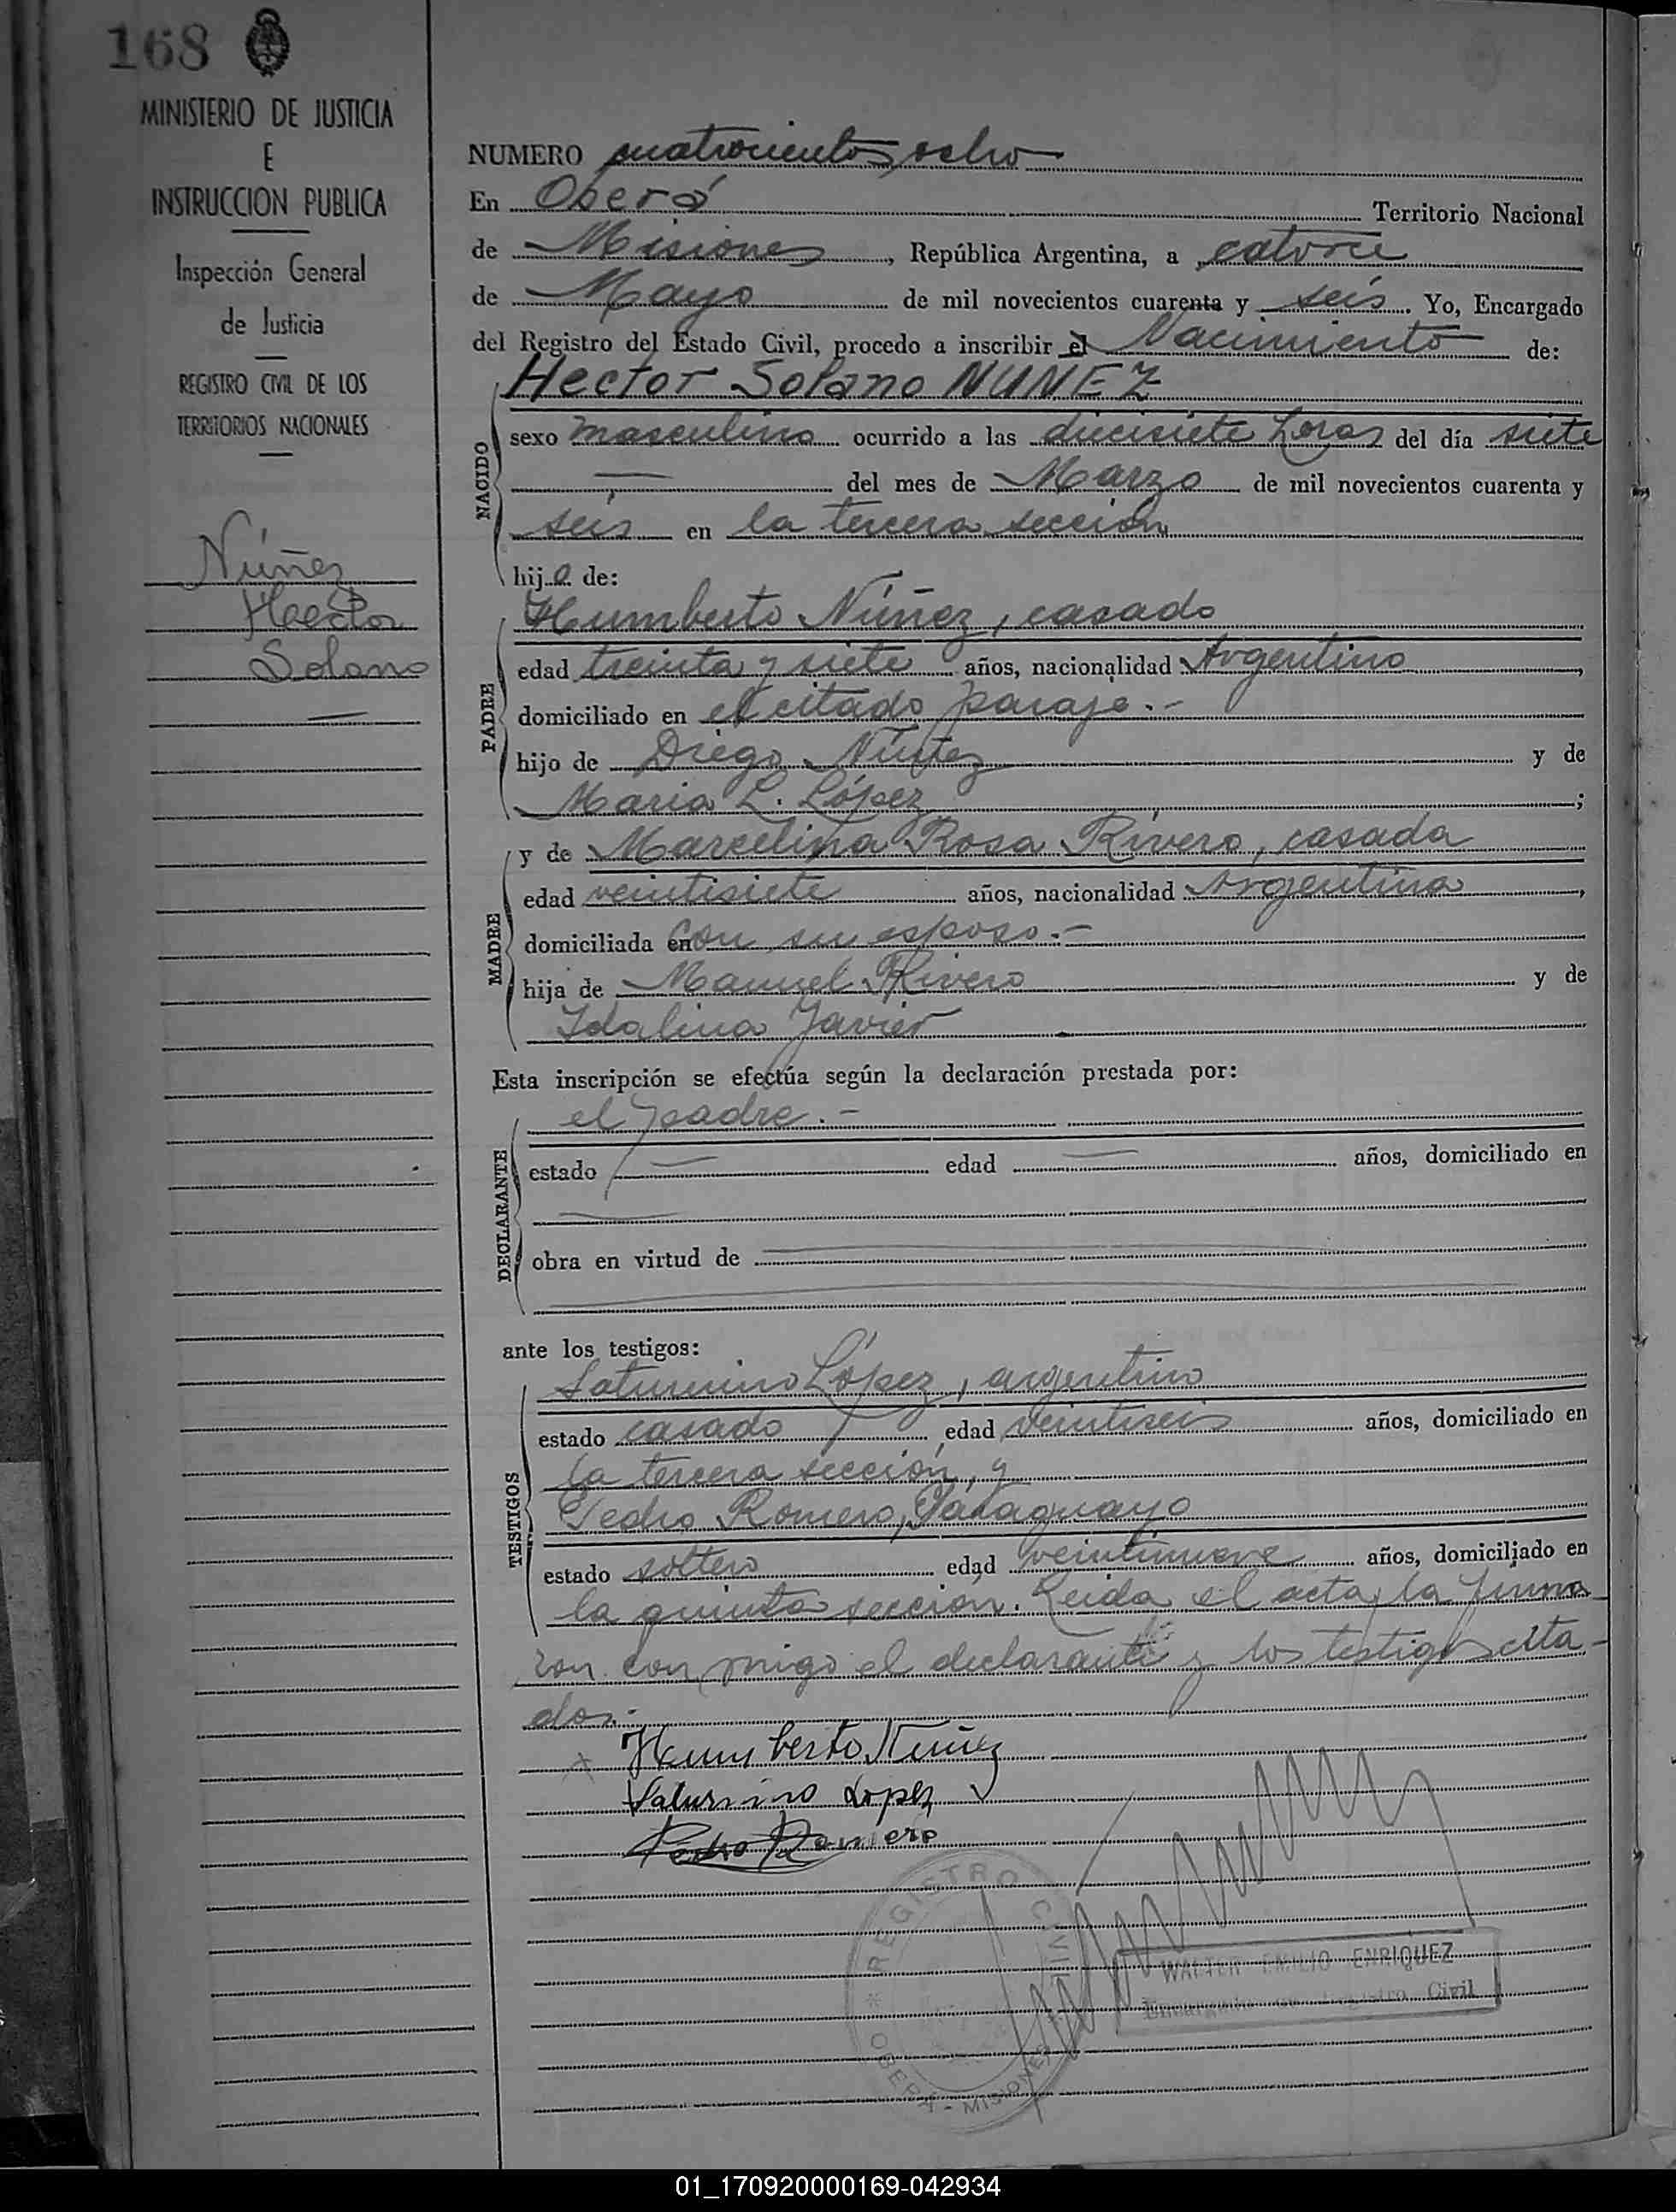 168
MINISTERIO DE JUSTICIA
E
INSTRUCCION PUBLICA
Inspección General
de Justicia
REGISTRO CIVIL DE LOS
TERRITORIOS NACIONALES
Núñez
Hector
Solano
NUMERO cuatrocientos ocho
En Oberá Territorio Nacional
de Misiones, República Argentina, a catorce
de Mayo de mil novecientos cuarenta y seis. Yo, Encargado
del Registro del Estado Civil, procedo a inscribir el Nacimiento de:
Hector Solano NUNEZ
NACIDO
sexo masculino ocurrido a las diecisiete horas del día siete
— del mes de Marzo de mil novecientos cuarenta y
seis en la tercera sección
hijo de:
PADRE
Humberto Núñez, casado
edad treinta y siete años, nacionalidad Argentino,
domiciliado en el citado paraje.-
hijo de Diego Núñez y de
Maria L. López;
MADRE
y de Marcelina Rosa Rivero, casada
edad veintisiete años, nacionalidad Argentina,
domiciliada en con su esposo.-
hija de Manuel Rivero y de
Idalina Javier
Esta inscripción se efectúa según la declaración prestada por:
DECLARANTE
el padre.-
estado — edad — años, domiciliado en
obra en virtud de
ante los testigos:
TESTIGOS
Saturnino López, argentino
estado casado, edad veintiseis años, domiciliado en
la tercera sección, y
Pedro Romero, Paraguayo
estado soltero edad veintinueve años, domiciliado en
la quinta sección. Leida el acta, la firma
ron con migo el declarante y los testigos cita-
dos.-
Humberto Núñez
Saturnino Lopez
Pedro Romero
REGISTRO CIVIL
* OBERÁ - MISIONES
WALTER EMILIO ENRIQUEZ
Encargado del Registro Civil
01_170920000169-042934